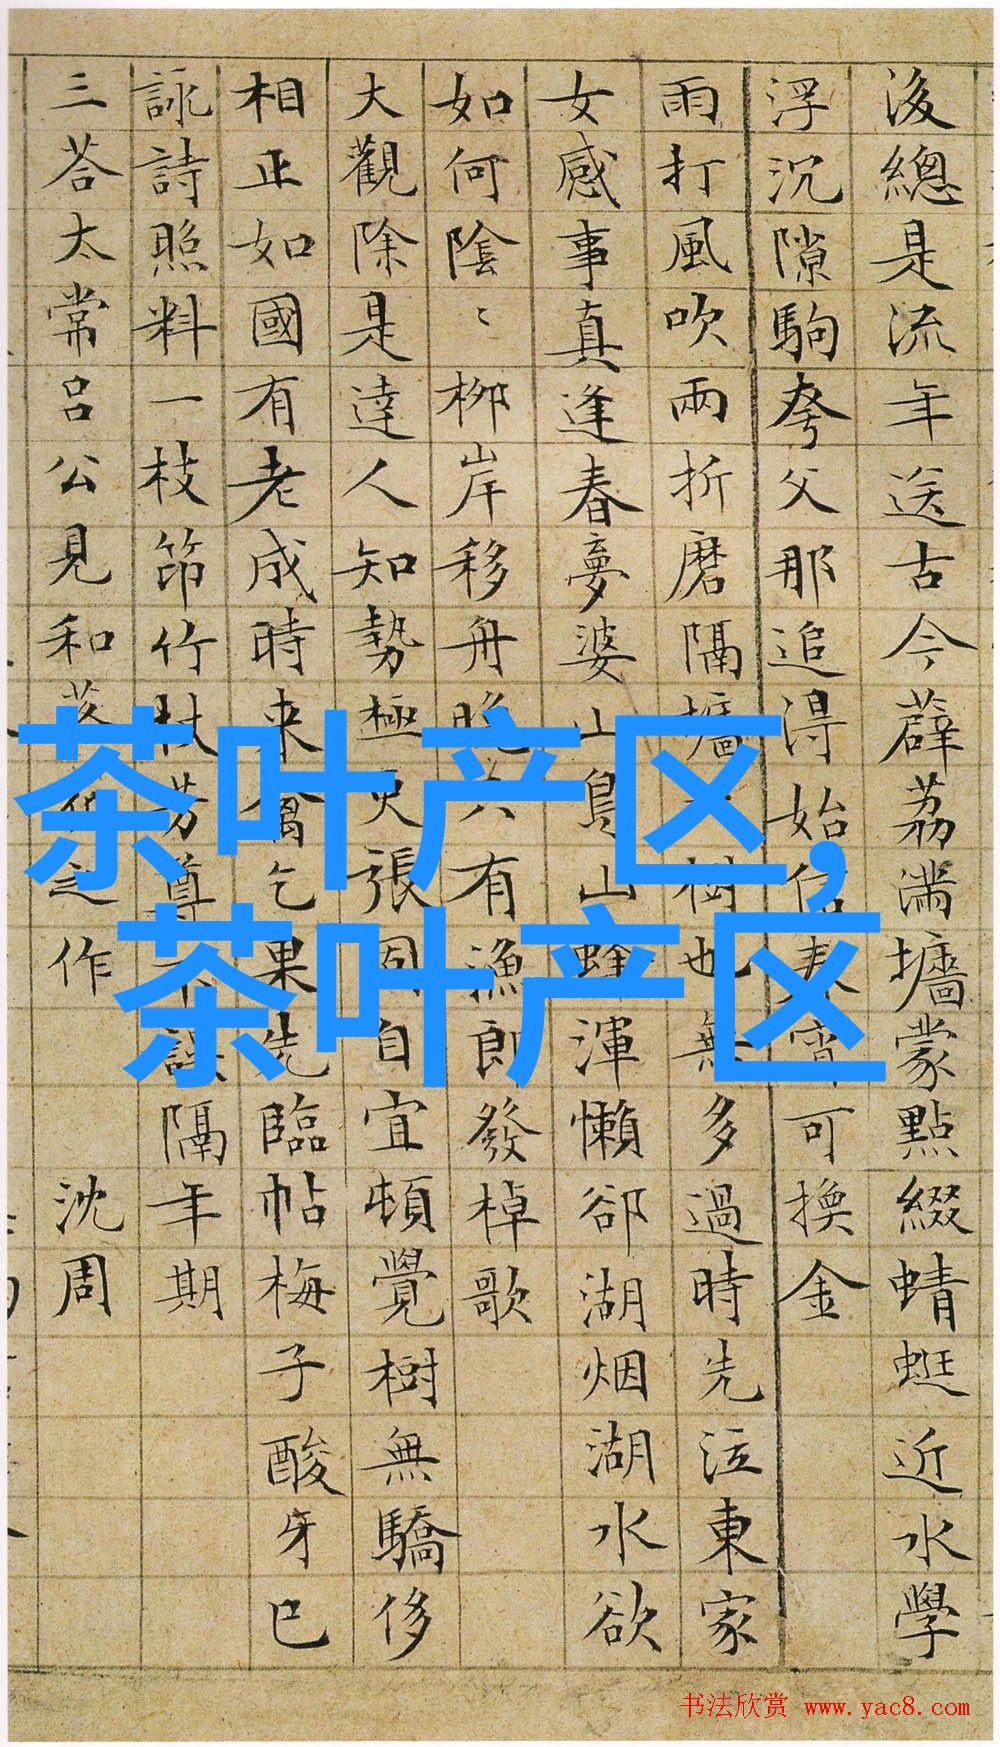 後總是流年送古今薜荔滿墻蒙點綴蜻蜓近水學
浮沉隙駒夸父那追得始信春宵可換金
雨打風吹兩折磨隔墻樹也無多過時先泣東家
女感事真逢春夢婆山鳥山蜂渾懶郤湖烟湖水欲
如何陰〻柳岸移舟晚六有漁郎發棹歌
大觀除是達人知勢極更張固自宜頓覺樹無驕侈
相正如國有老成時来禽乞果先臨帖梅子酸牙已
詠詩照料一枝笻竹杖芳尊誤隔年期
三荅太常呂公見和落花之作 沈周
茶叶产区,
茶叶产区
书法欣赏 www.yac8.com